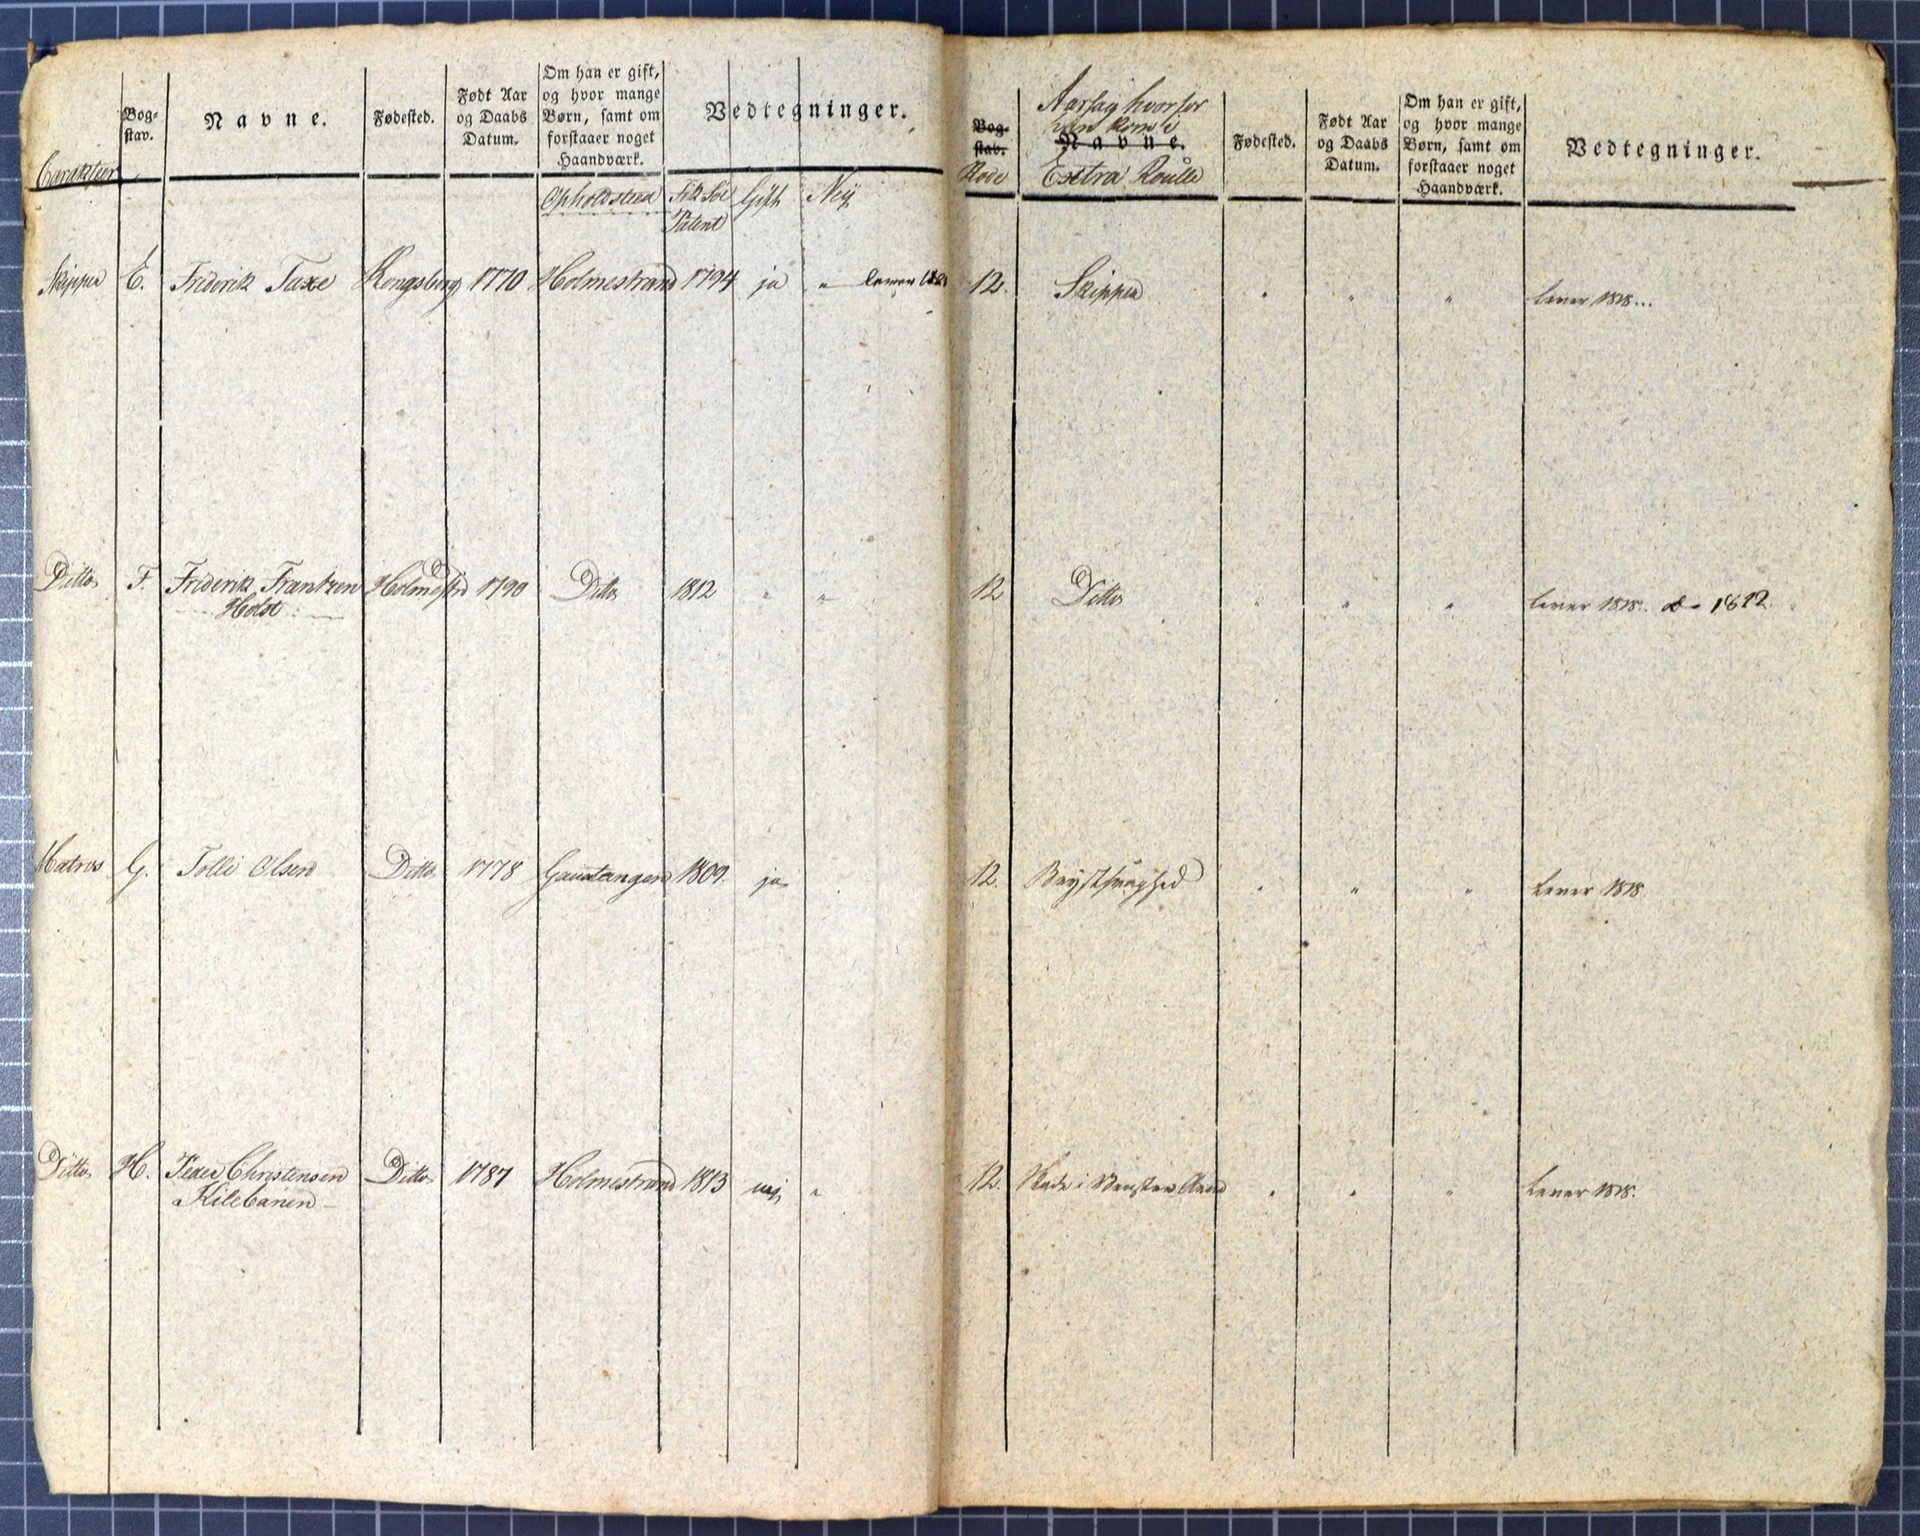 Carakteer
Bog-
stav.
Navne.
Fødested.
Født Aar
og Daabs
Datum.
Om han er gift,
og hvor mange
Børn, samt om
forstaaer noget
Haandværk.
Vedtegninger.
Opholdsted
Gift
Ney
Patent
Skipper E. Friderik Taxe Kongsberg 1770 Holmestrand 1794 ja "
Ditto F. Friderik Frantzen Holmestrd 1790 Ditto 1812 " "
Holdt
Matros G. Tolle Olsen Ditto 1778 Gausetangen 1809. ja
Ditto H. Peder Christensen Ditto 1787 Holmestrand 1813 nej "
Kilebanen
Bog-
stav.
Rode
Aarsag hvorfor
han kom i
Navne.
Extra Roulle
Fødested.
Født Aar
og Daabs
Datum.
Om han er gift,
og hvor mange
Børn, samt om
forstaaer noget
Haandværk.
Vedtegninger.
12. Skipper " " " lever 1818...
12 Ditto " " " lever 1818. do 1822.
12. Brystsvaghed " " " lever 1818.
12. Skade i Venstre " " " lever 1818.